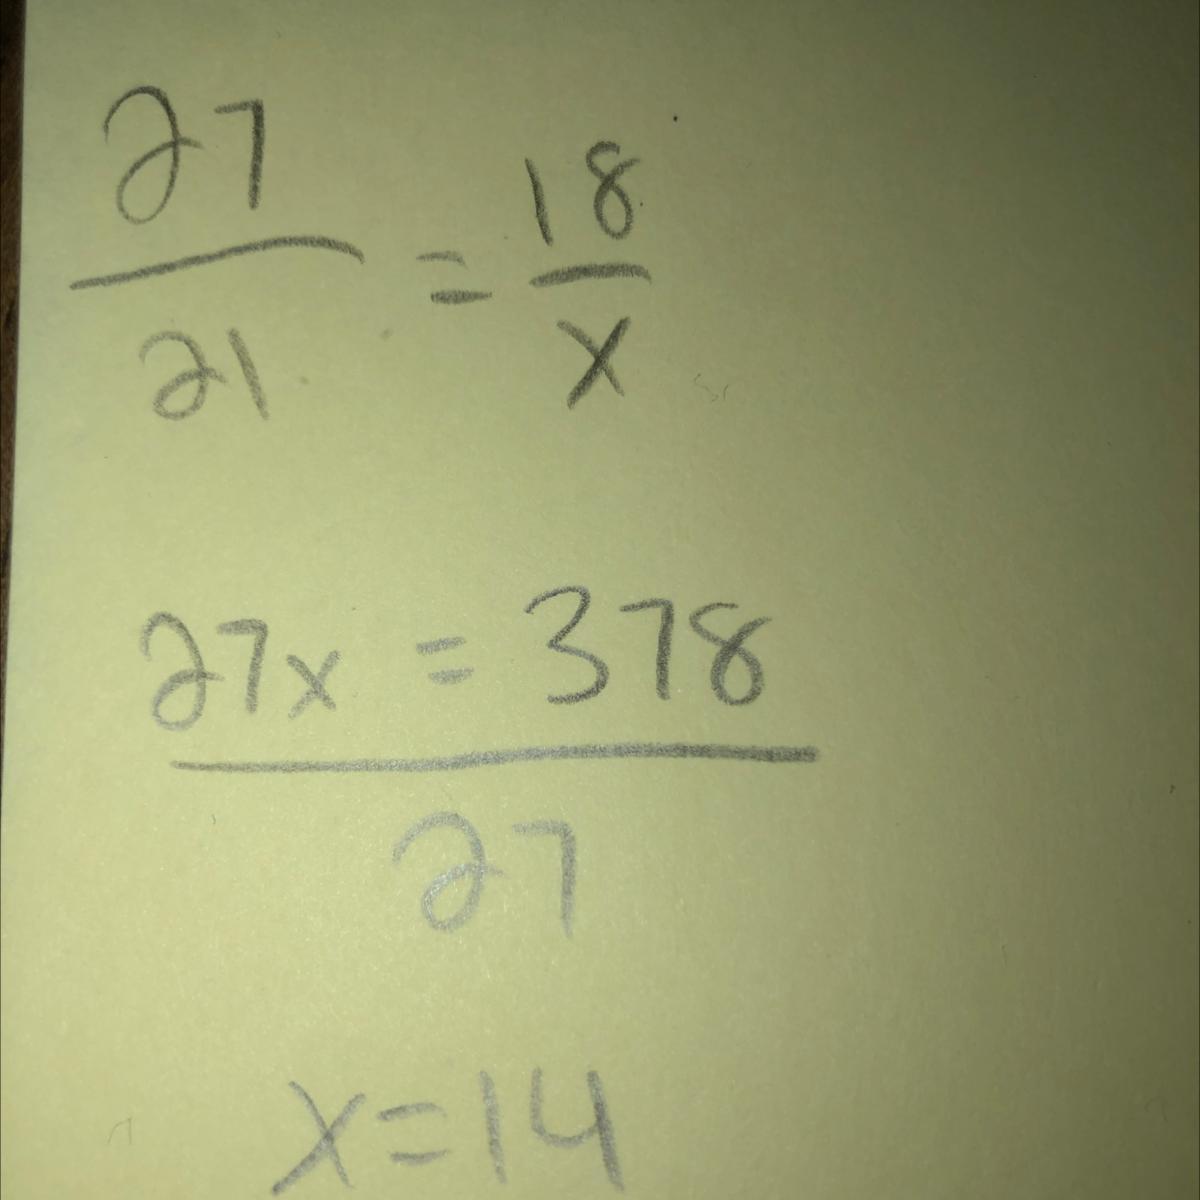 27/21 = 18/x
27x = 378
27
x=14